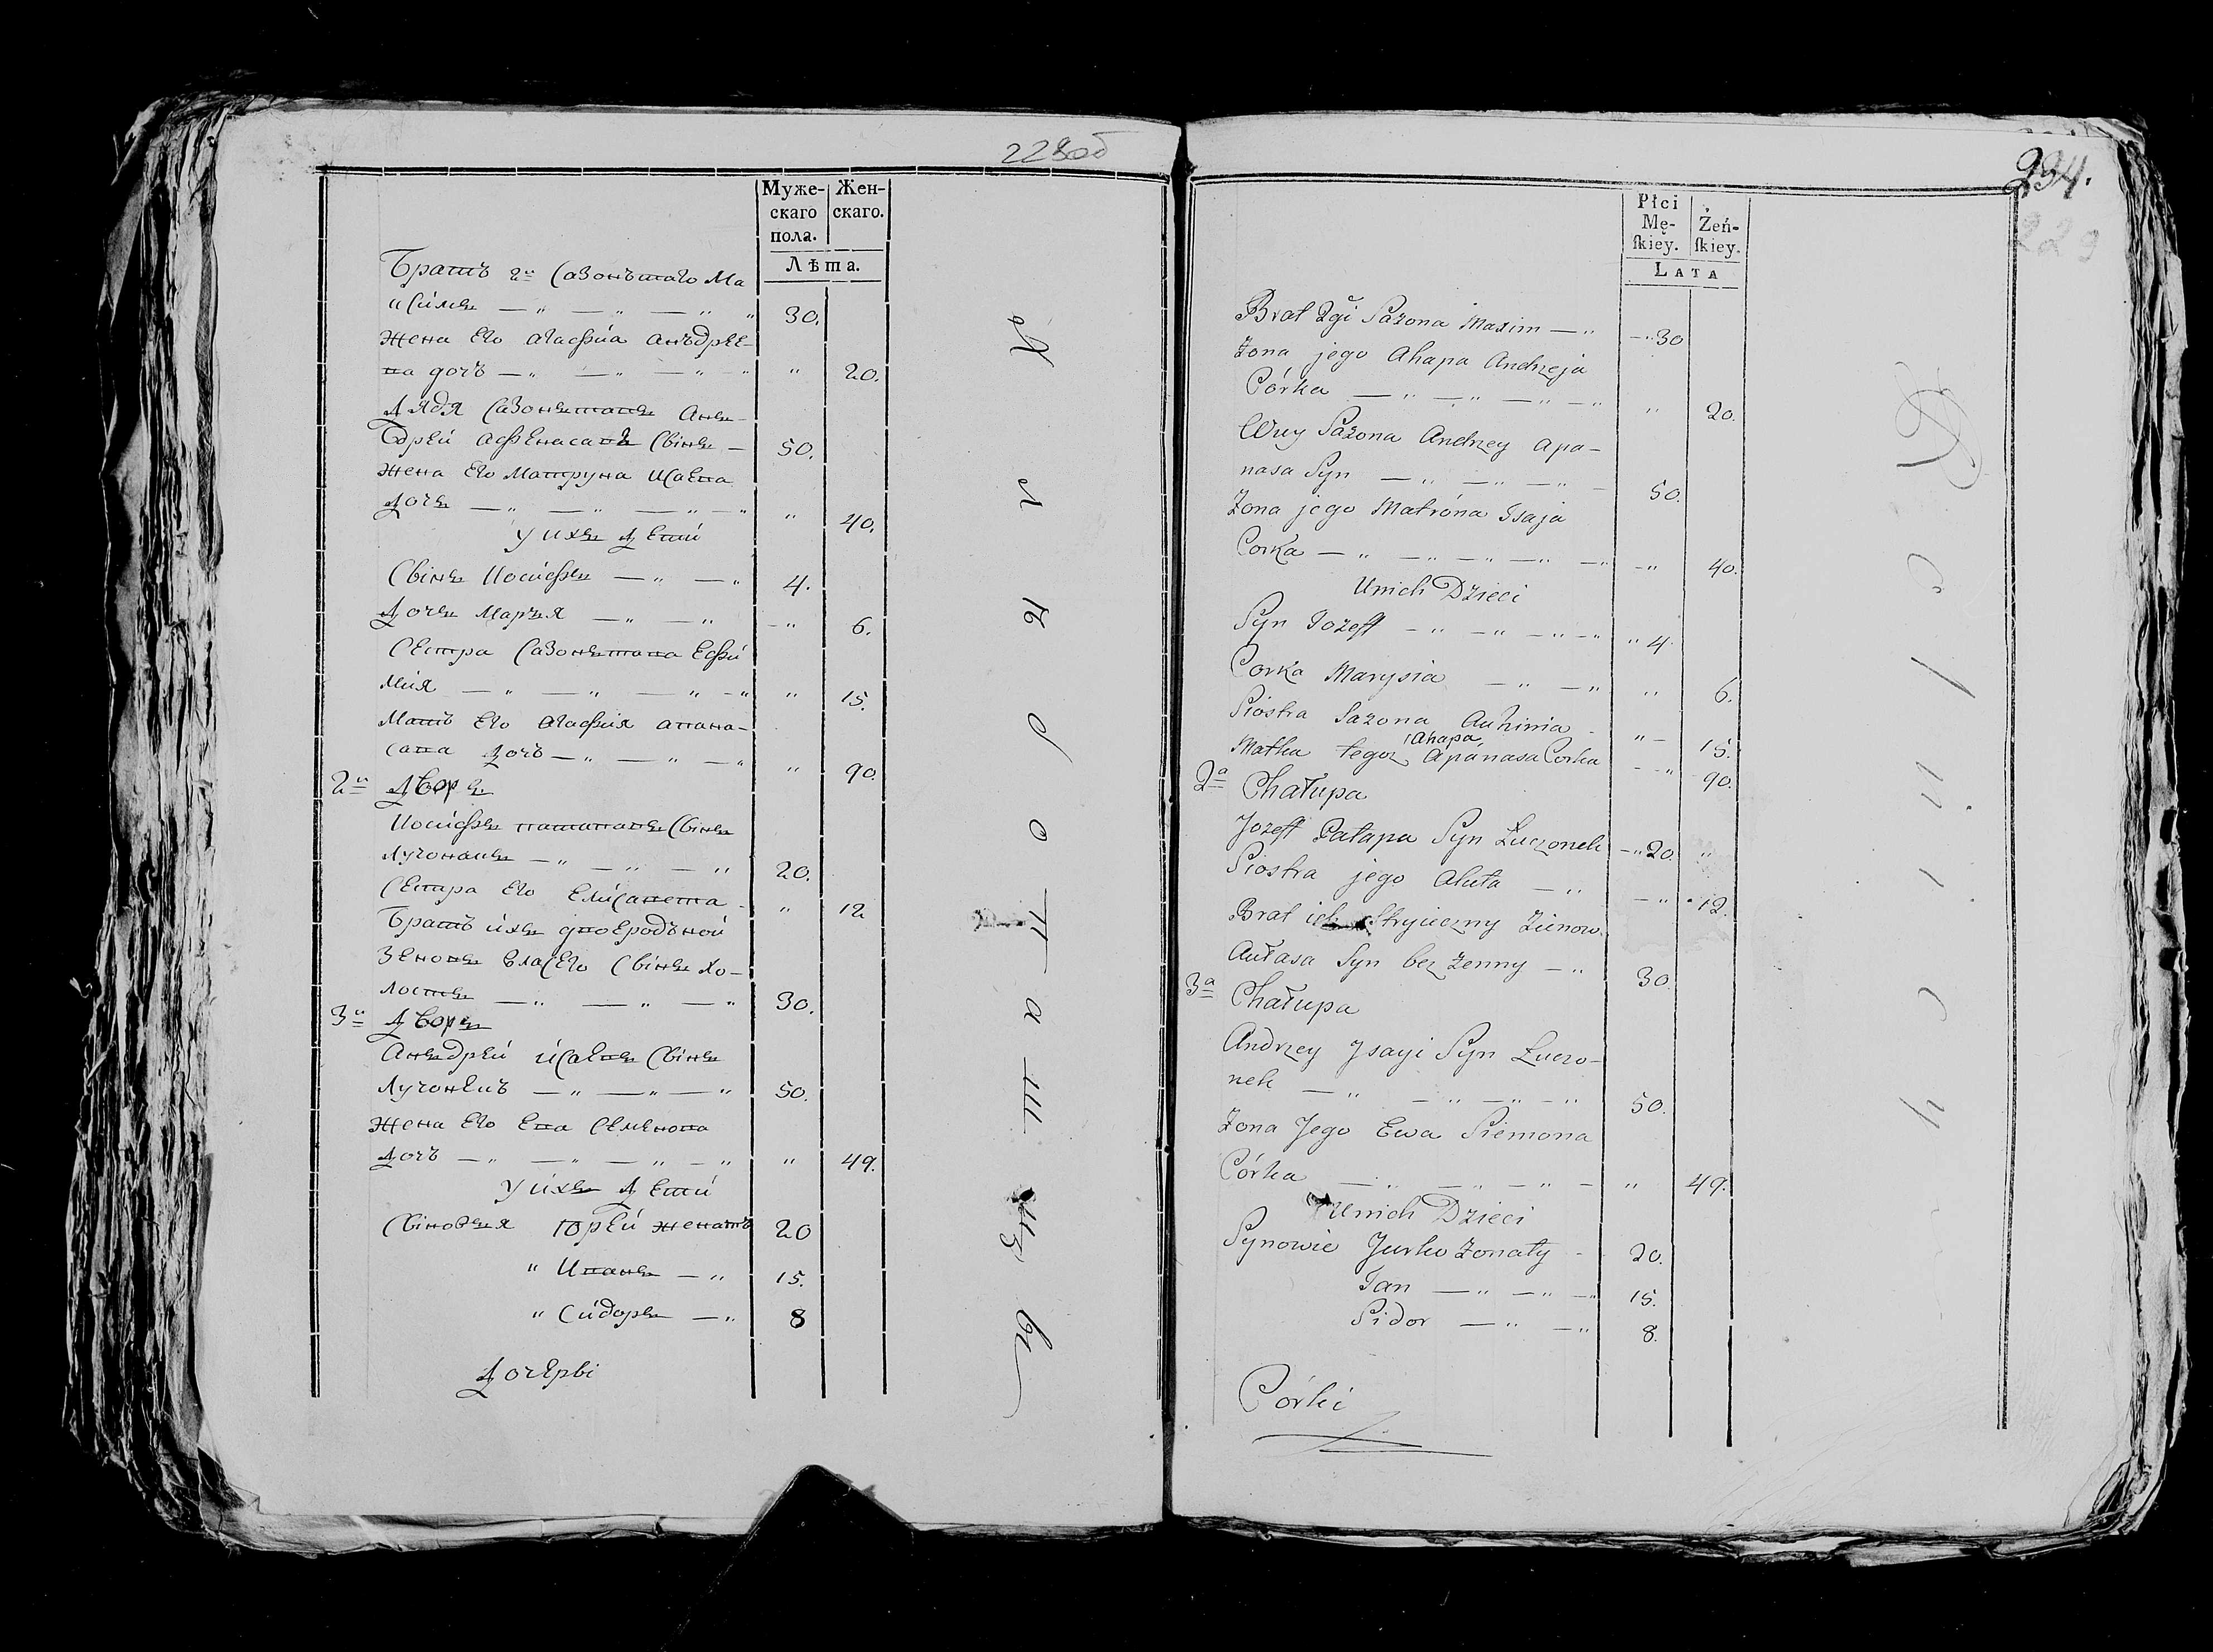 228об
Муже-
скаго
пола.
Жен-
скаго.
Лѣта.
Братъ 2й Сазонътаго Ма
ксимъ — „ — „ — „ „ 30.
Жена Его Агафиа Анъдрее-
ва дочъ — „ — „ — „ „ „ 20.
Дядя Сазонътавъ Анъ-
дрей Афенасавъ Свінъ — 50.
Жена Его Матруна Исаева
Дочъ — „ — „ — „ — „ „ 40.
У ихъ Дети
Свінъ Иосифъ — „ — „ 4.
Дочъ Маръя — „ — „ — „ 6.
Сестра Сазонътава Ефи
мия — „ — „ — „ — „ „ 15.
Матъ Его Агафия апана-
сава Дочъ — „ — „ — „ „ 90.
2й Дворъ
Иосифъ патапавъ Свінъ
Лучонакъ — „ — „ — „ 20.
Сестра Его Елисавета - „ 12
Братъ ихъ двоеродъной
Зеновъ Власего Свінъ Хо-
лостъ — „ — „ — „ 30.
3й Дворъ
Анъдрей Исаевъ Свінъ
Лучонекъ — „ — „ — „ 50.
Жена Его Ева Семенова
Дочъ — „ — „ — „ — „ „ 49.
У ихъ Дети
Свіновья Юрей женатъ 20
„ Иванъ — „ 15.
„ Сидоръ — „ 8
Дочерві
234.
229
Płci
Mę-
ſkiey.
Żeń-
ſkiey.
Lata
Brat 2gi Sazona Maxim — „ — „ 30
Zona jego Ahapa Andrzeja
Córka — „ — „ — „ — „ „ 20.
Wuy Sazona Andrzey Apa-
nasa Syn — „ — „ — „ — 50.
Zona jego Matróna Isaja
Corka — „ — „ — „ — „ — „ — „ 40.
Unich Dzieci
Syn Jozeff — „ — „ — „ — „ „ 4.
Corka Marysia — „ — „ „ 6.
Siostra Sazona Auhinia - „ — 15.
Ahapa
Matka tegoz Apanasa Corka — „ 90.
2a Chałupa
Jozeff Patapa Syn Łuczonek — „ 20. „
Siostra jego Aluta — „ — „ 12.
Brat ich Stryieczny Zienow.
Aułasa Syn bez Zenny — „ 30.
3a Chałupa
Andrzey Jsayi Syn Łuczo-
nek — „ — „ — „ — „ 50.
Zona Jego Ewa Siemona
Córka — „ — „ — „ — „ 49.
Unich Dzieci
Synowie Jurko Zonaty - 20.
Jan — „ — „ — „ 15.
Sidor — „ — „ 8.
Córki